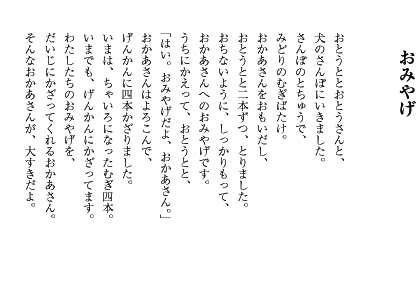 おみやげ
おとうととおとうさんと、
犬のさんぽにいきました。
さんぽのとちゅうで、
みどりのむぎばたけ。
おかあさんをおもいだし、
おとうとと二本ずつ、とりました。
おちないように、しっかりもって、
おかあさんへのおみやげです。
うちにかえって、おとうとと、
「はい。おみやげだよ、おかあさん。」
おかあさんはよろこんで、
げんかんに四本かざりました。
いまは、ちゃいろになったむぎ四本。
いまでも、げんかんにかざってます。
わたしたちのおみやげを、
だいじにかざってくれるおかあさん。
そんなおかあさんが、大すきだよ。